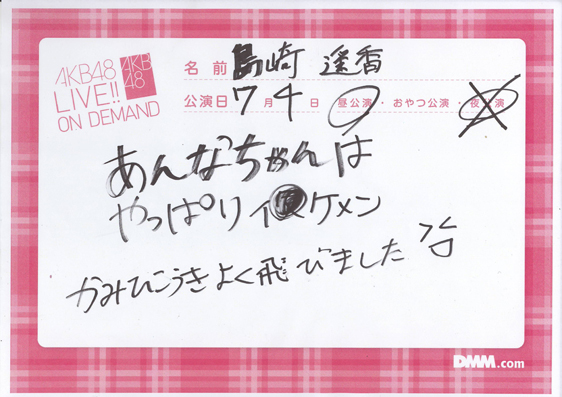 AKB48
LIVE!!
ON DEMAND
AKB
48
名前 島崎 遥香
公演日 7月4日 昼公演・おやつ公演・夜公演
あんなちゃんは
やっぱりイケメン
かみひこうきよく飛びました
DMM.com